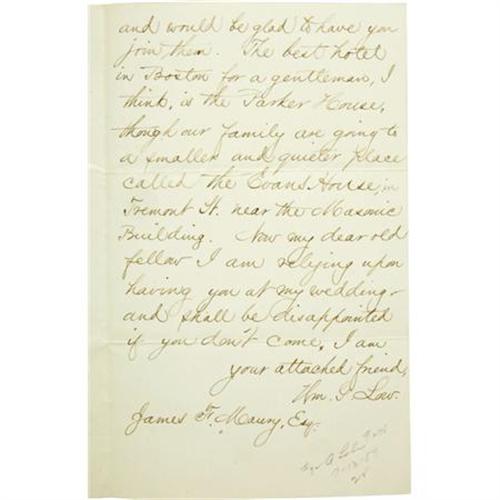 and would be glad to have you
join them. The best hotel
in Boston for a gentleman, I
think, is the Parker House,
though our family are going to
a smaller and quieter place
called the Evans House, in
Tremont St. near the Masonic
Building. Now my dear old
fellow I am relying upon
having you at my wedding-
and shall be disappointed
if you don't come. I am
your attached friend,
Wm. G. Low.
James F. Maury, Esq.